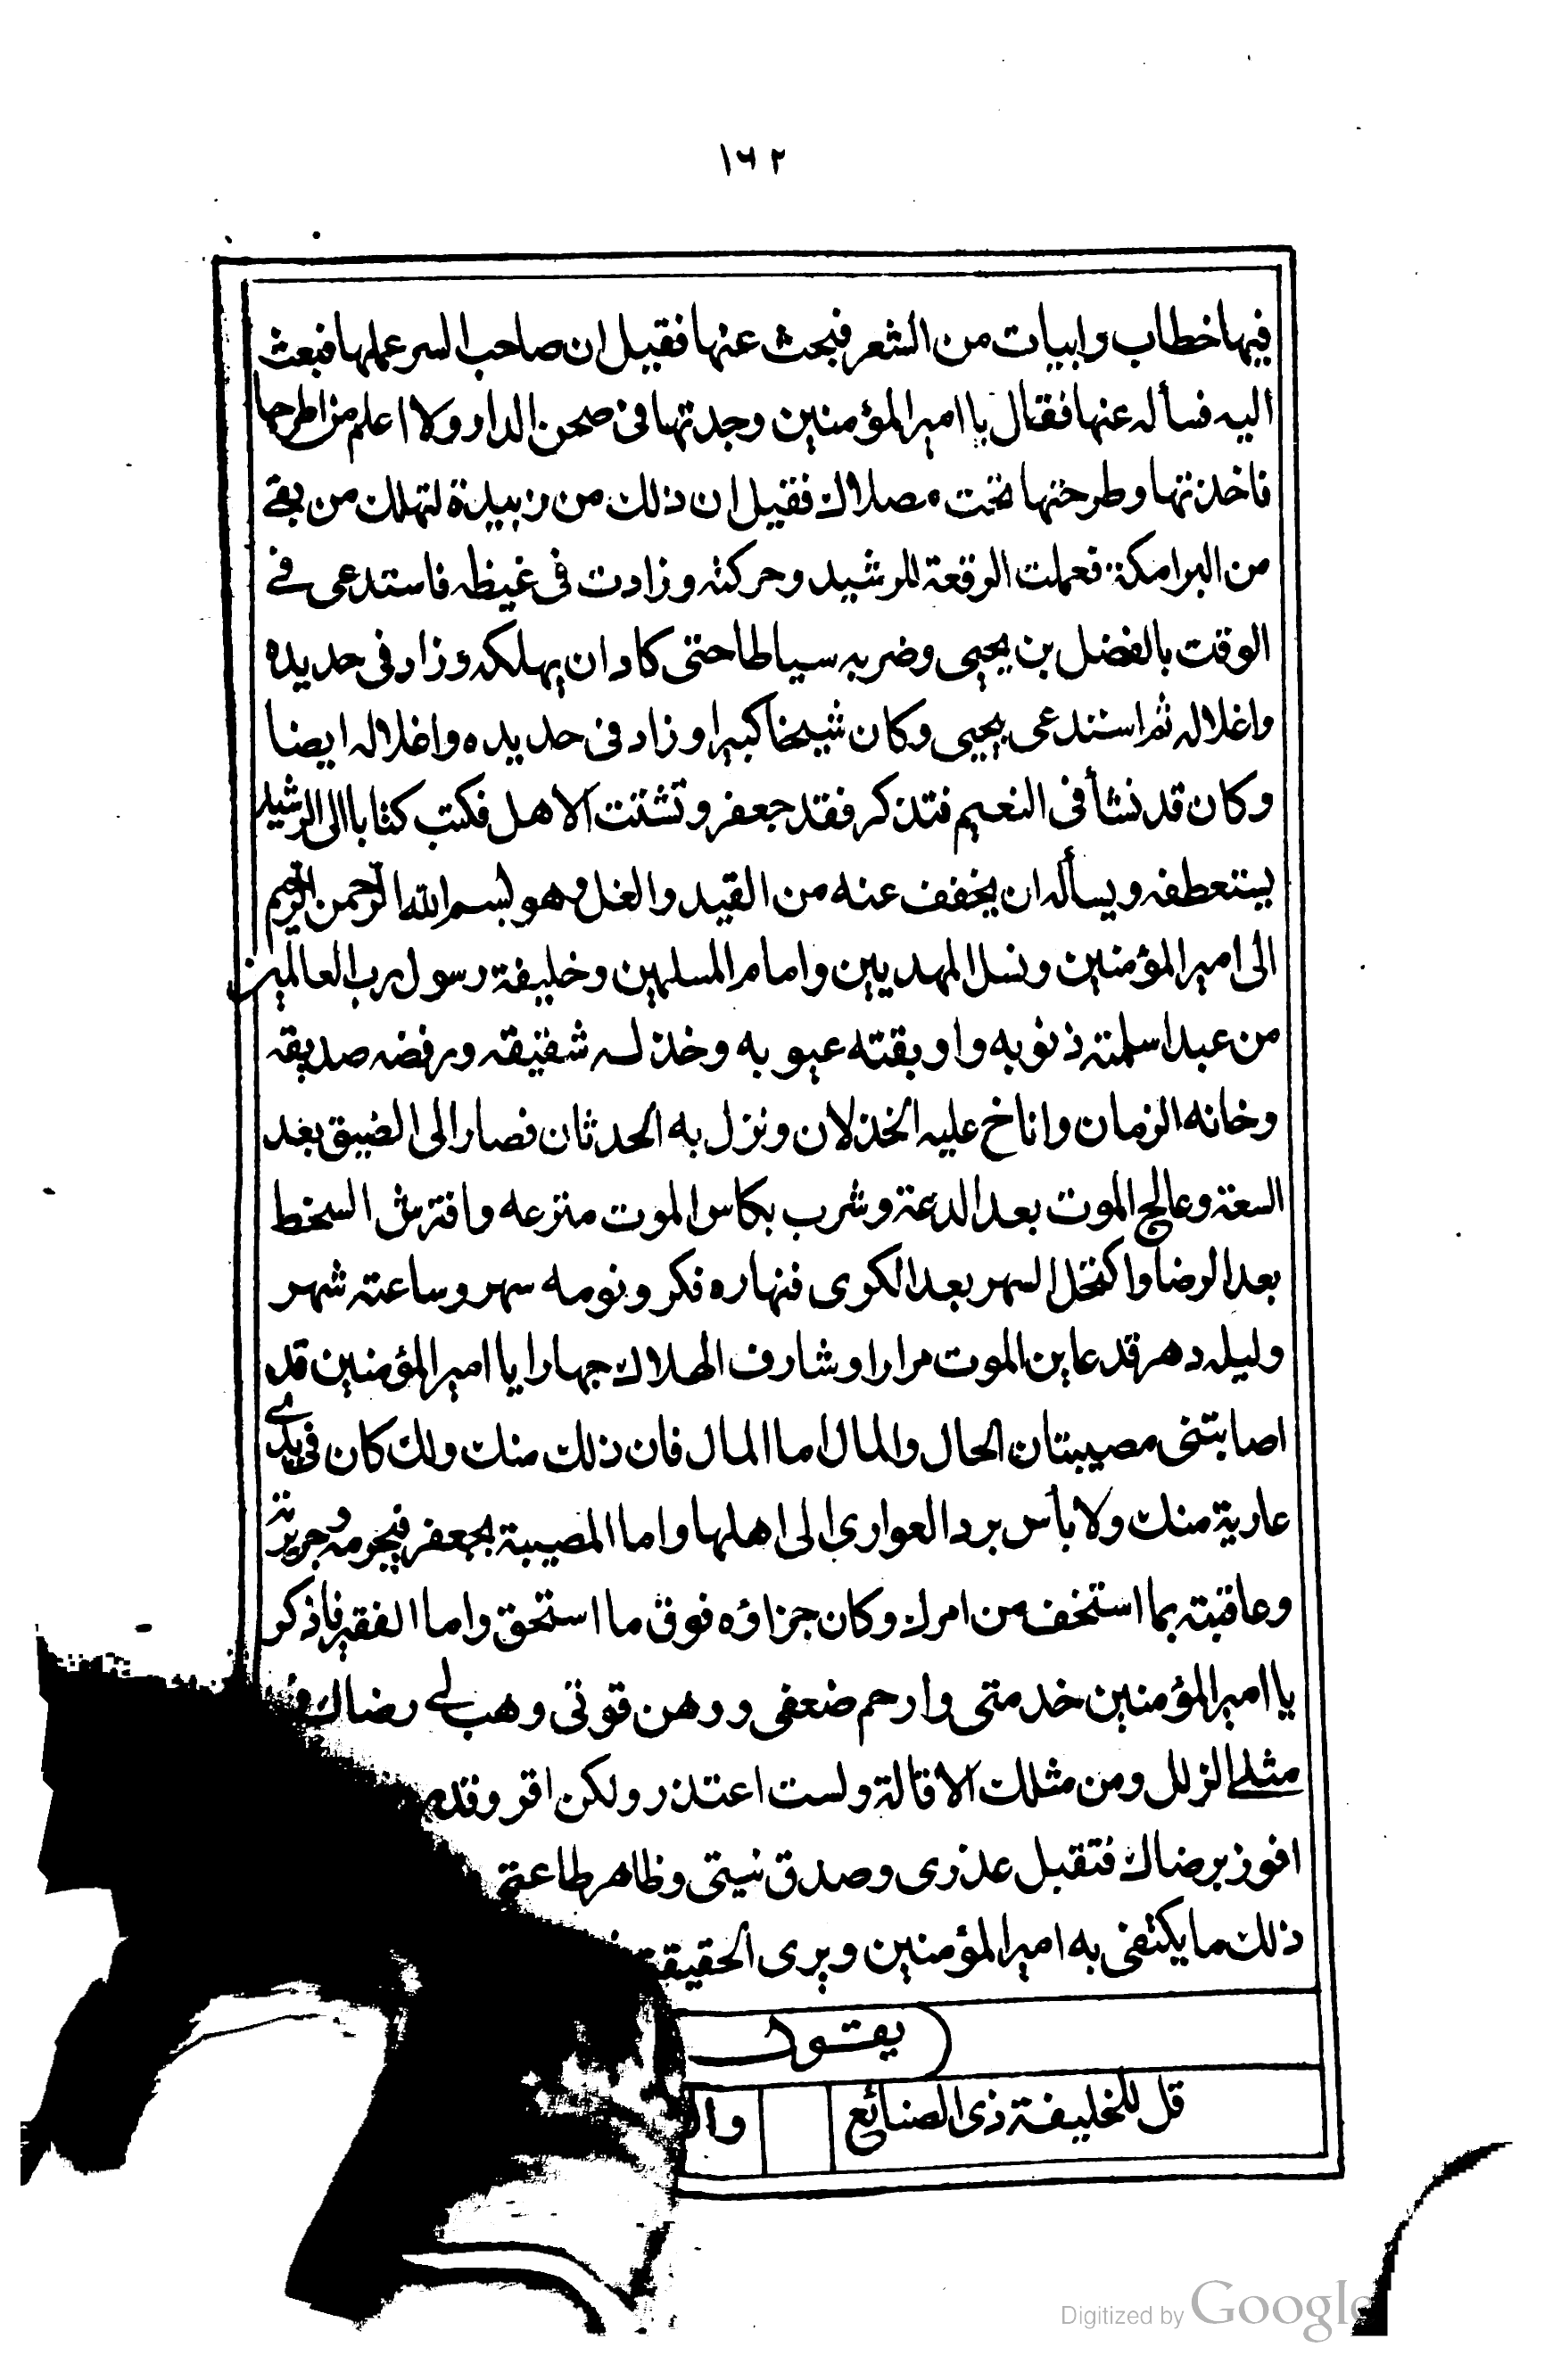 ١٦٢
فيها خطاب وابيات من الشعر فبحث عنها فقيل ان صاحب السر عملها فبعث
اليه فسأله عنها فقال يا امير المؤمنين وجدتها فى صحن الدار ولا اعلم من اطرحها
فاخذتها وطرحتها تحت مصلاك فقيل ان ذلك من زبيدة لتهلك من بقے
من البرامكة فعملت الرقعة للرشيد وحركته وزادت فى غيظه فاستدعى فے
الوقت بالفضل بن يحيى وضربه سياطا حتى كاد ان يهلكه وزاد فى حديده
واغلاله ثم استدعى بيحيى وكان شيخا كبيرا وزاد فى حديده واغلاله ايضا
وكان قد نشأ فى النعيم فتذكر فقد جعفر وتشتت الاهل فكتب كتابا الى الرشيد
يستعطفه ويسأله ان يخفف عنه من القيد والغل وهو بسم الله الرحمن الرحيم
الى امير المؤمنين ونسل المهديين وامام المسلمين وخليفة رسول رب العالمين
من عبد اسلمته ذنوبه واوبقته عيوبه وخذله شقيقه ورفضه صديقه
وخانه الزمان واناخ عليه الخذلان ونزل به الحدثان فصار الى الضيق بعد
السعة وعالج الموت بعد الدعة وشرب بكاس الموت منزعه وافترش السخط
بعد الرضا واكتحل السهر بعد الكرى فنهاره فكر ونومه سهر وساعته شهر
وليله دهر قد عاين الموت مرارا وشارف الهلاك جهارا يا امير المؤمنين قد
اصابتنى مصيبتان الحال والمال اما المال فان ذلك منك ولك كان فى يدے
عارية منك ولا بأس برد العوارى الى اهلها واما المصيبة بجعفر فبجرمه وجريرته
وعاقبته بما استخف من امرك وكان جزاؤه فوق ما استحق واما الفقير فاذكر
يا امير المؤمنين خدمتى وارحم ضعفى ووهن قوتى وهب لے رضاك
مثلے الزلل ومن مثلك الاقالة ولست اعتذر ولكن اقر وقد
افوز برضاك فتقبل عذرى وصدق نيتى وظاهر طاعتى
ذلك ما يكتفى به امير المؤمنين ويرى الحقيقة
يقول
قل للخليفة ذى الصنائع
Digitized by Google